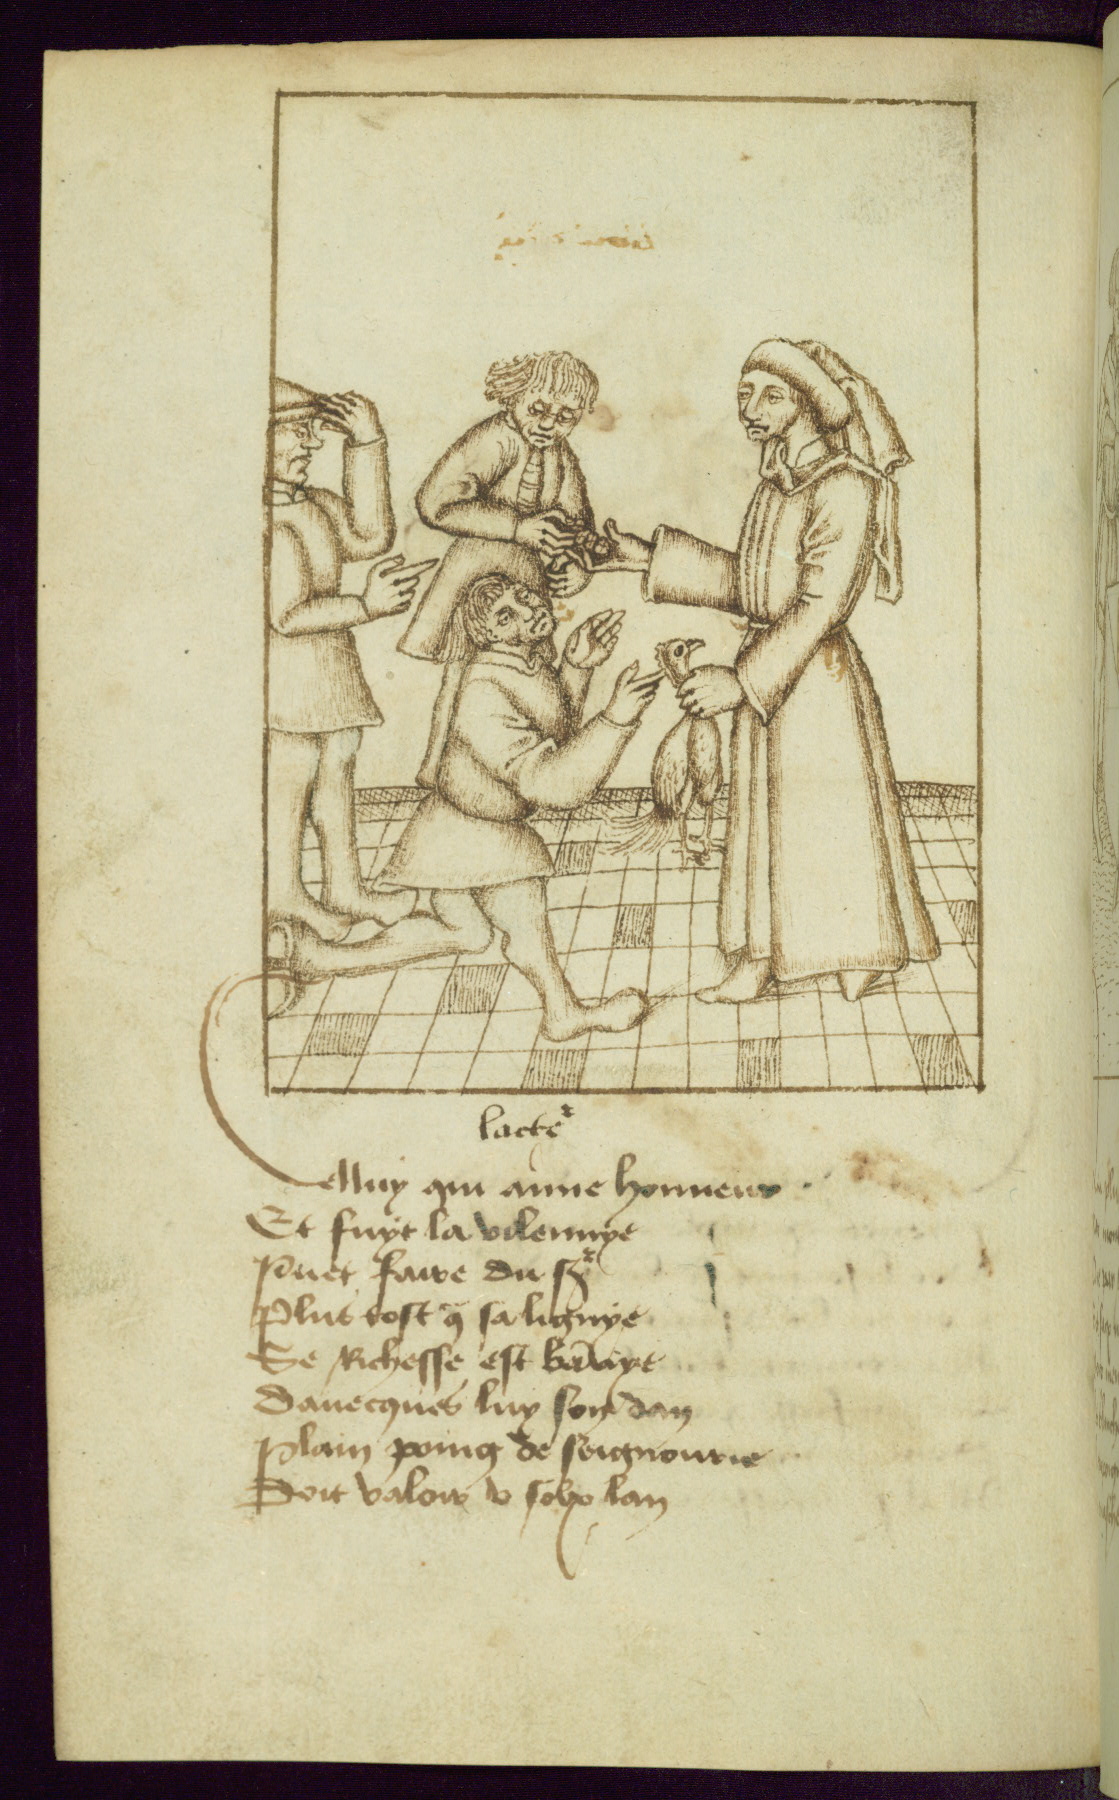 lacte
elluy qui aime honneur
Et fuyt la vilennye
Puet faire du
Plus tost q̃ sa lignye
Se Richesse est
Dauecques luy son dan
Plain poing de seignourie
Doit valoir v solx lan